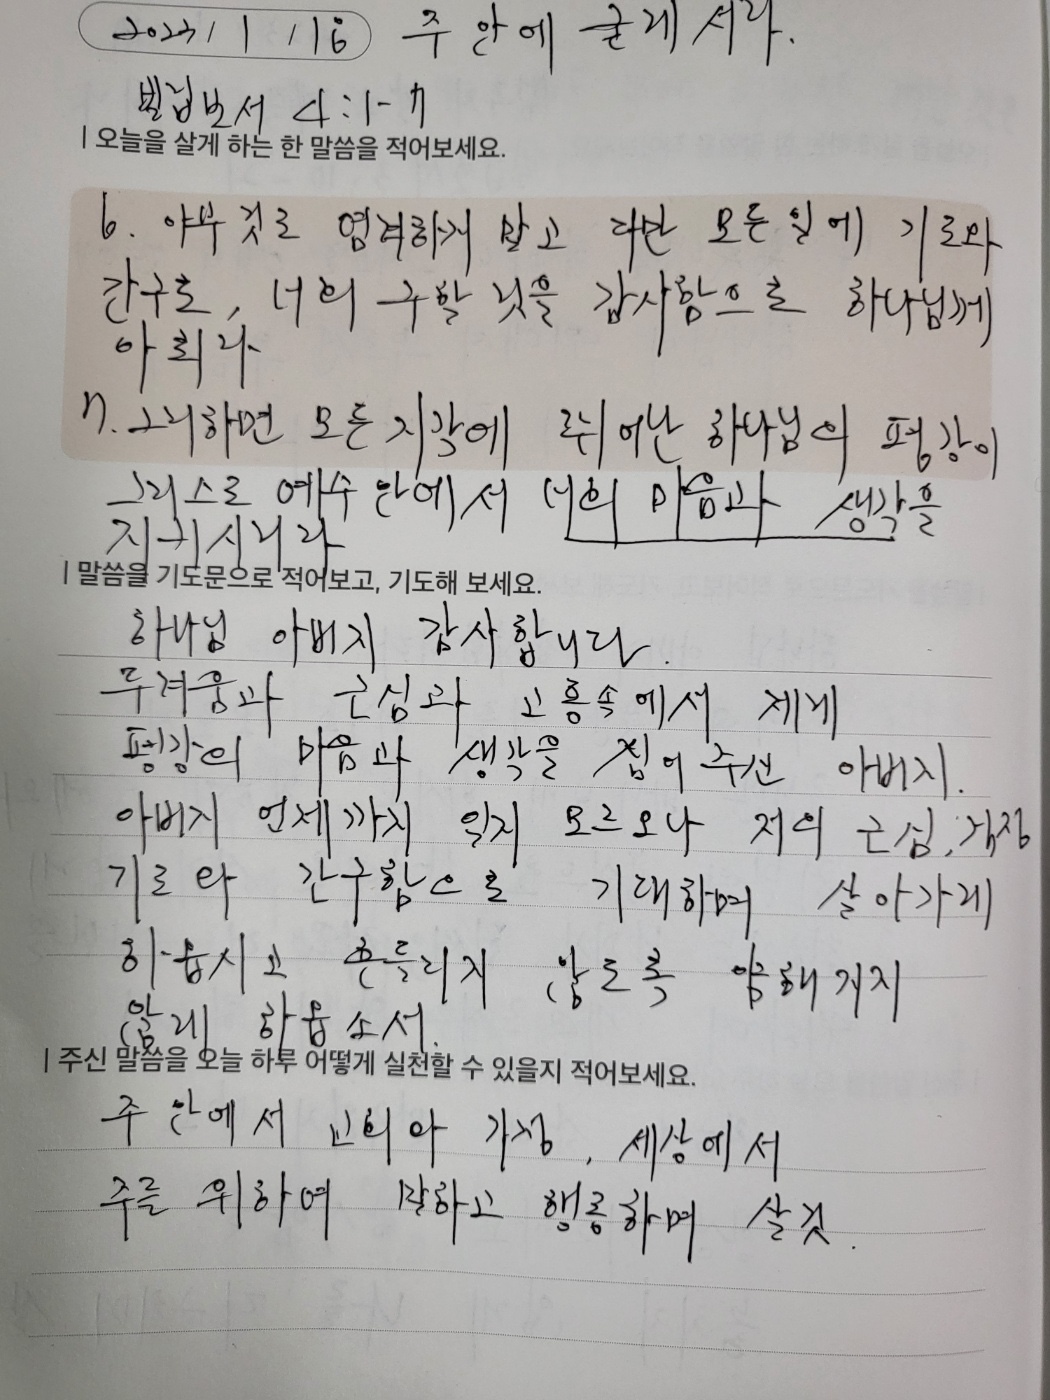 2023/1/16 주 안에 굳게 서라.
빌립보서 4:1-7
| 오늘을 살게 하는 한 말씀을 적어보세요.
6. 아무 것도 염려하지 말고 다만 모든 일에 기도와
간구로, 너희 구할 것을 감사함으로 하나님께
아뢰라
7. 그리하면 모든 지각에 뛰어난 하나님의 평강이
그리스도 예수 안에서 너희 마음과 생각을
지키시니라
| 말씀을 기도문으로 적어보고, 기도해 보세요.
하나님 아버지 감사합니다.
두려움과 근심과 고통속에서 제게
평강의 마음과 생각을 집어주신 아버지.
아버지 언제까지 일지 모르오나 저의 근심, 걱정
기도와 간구함으로 기대하며 살아가게
하옵시고 흔들리지 않도록 약해지지
않게 하옵소서.
| 주신 말씀을 오늘 하루 어떻게 실천할 수 있을지 적어보세요.
주 안에서 교회와 가정, 세상에서
주를 위하여 말하고 행동하며 살것.